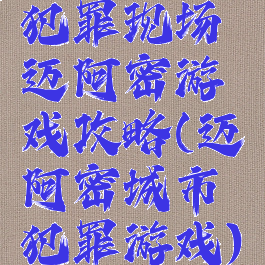 犯罪现场
迈阿密游
戏攻略(迈
阿密城市
犯罪游戏)